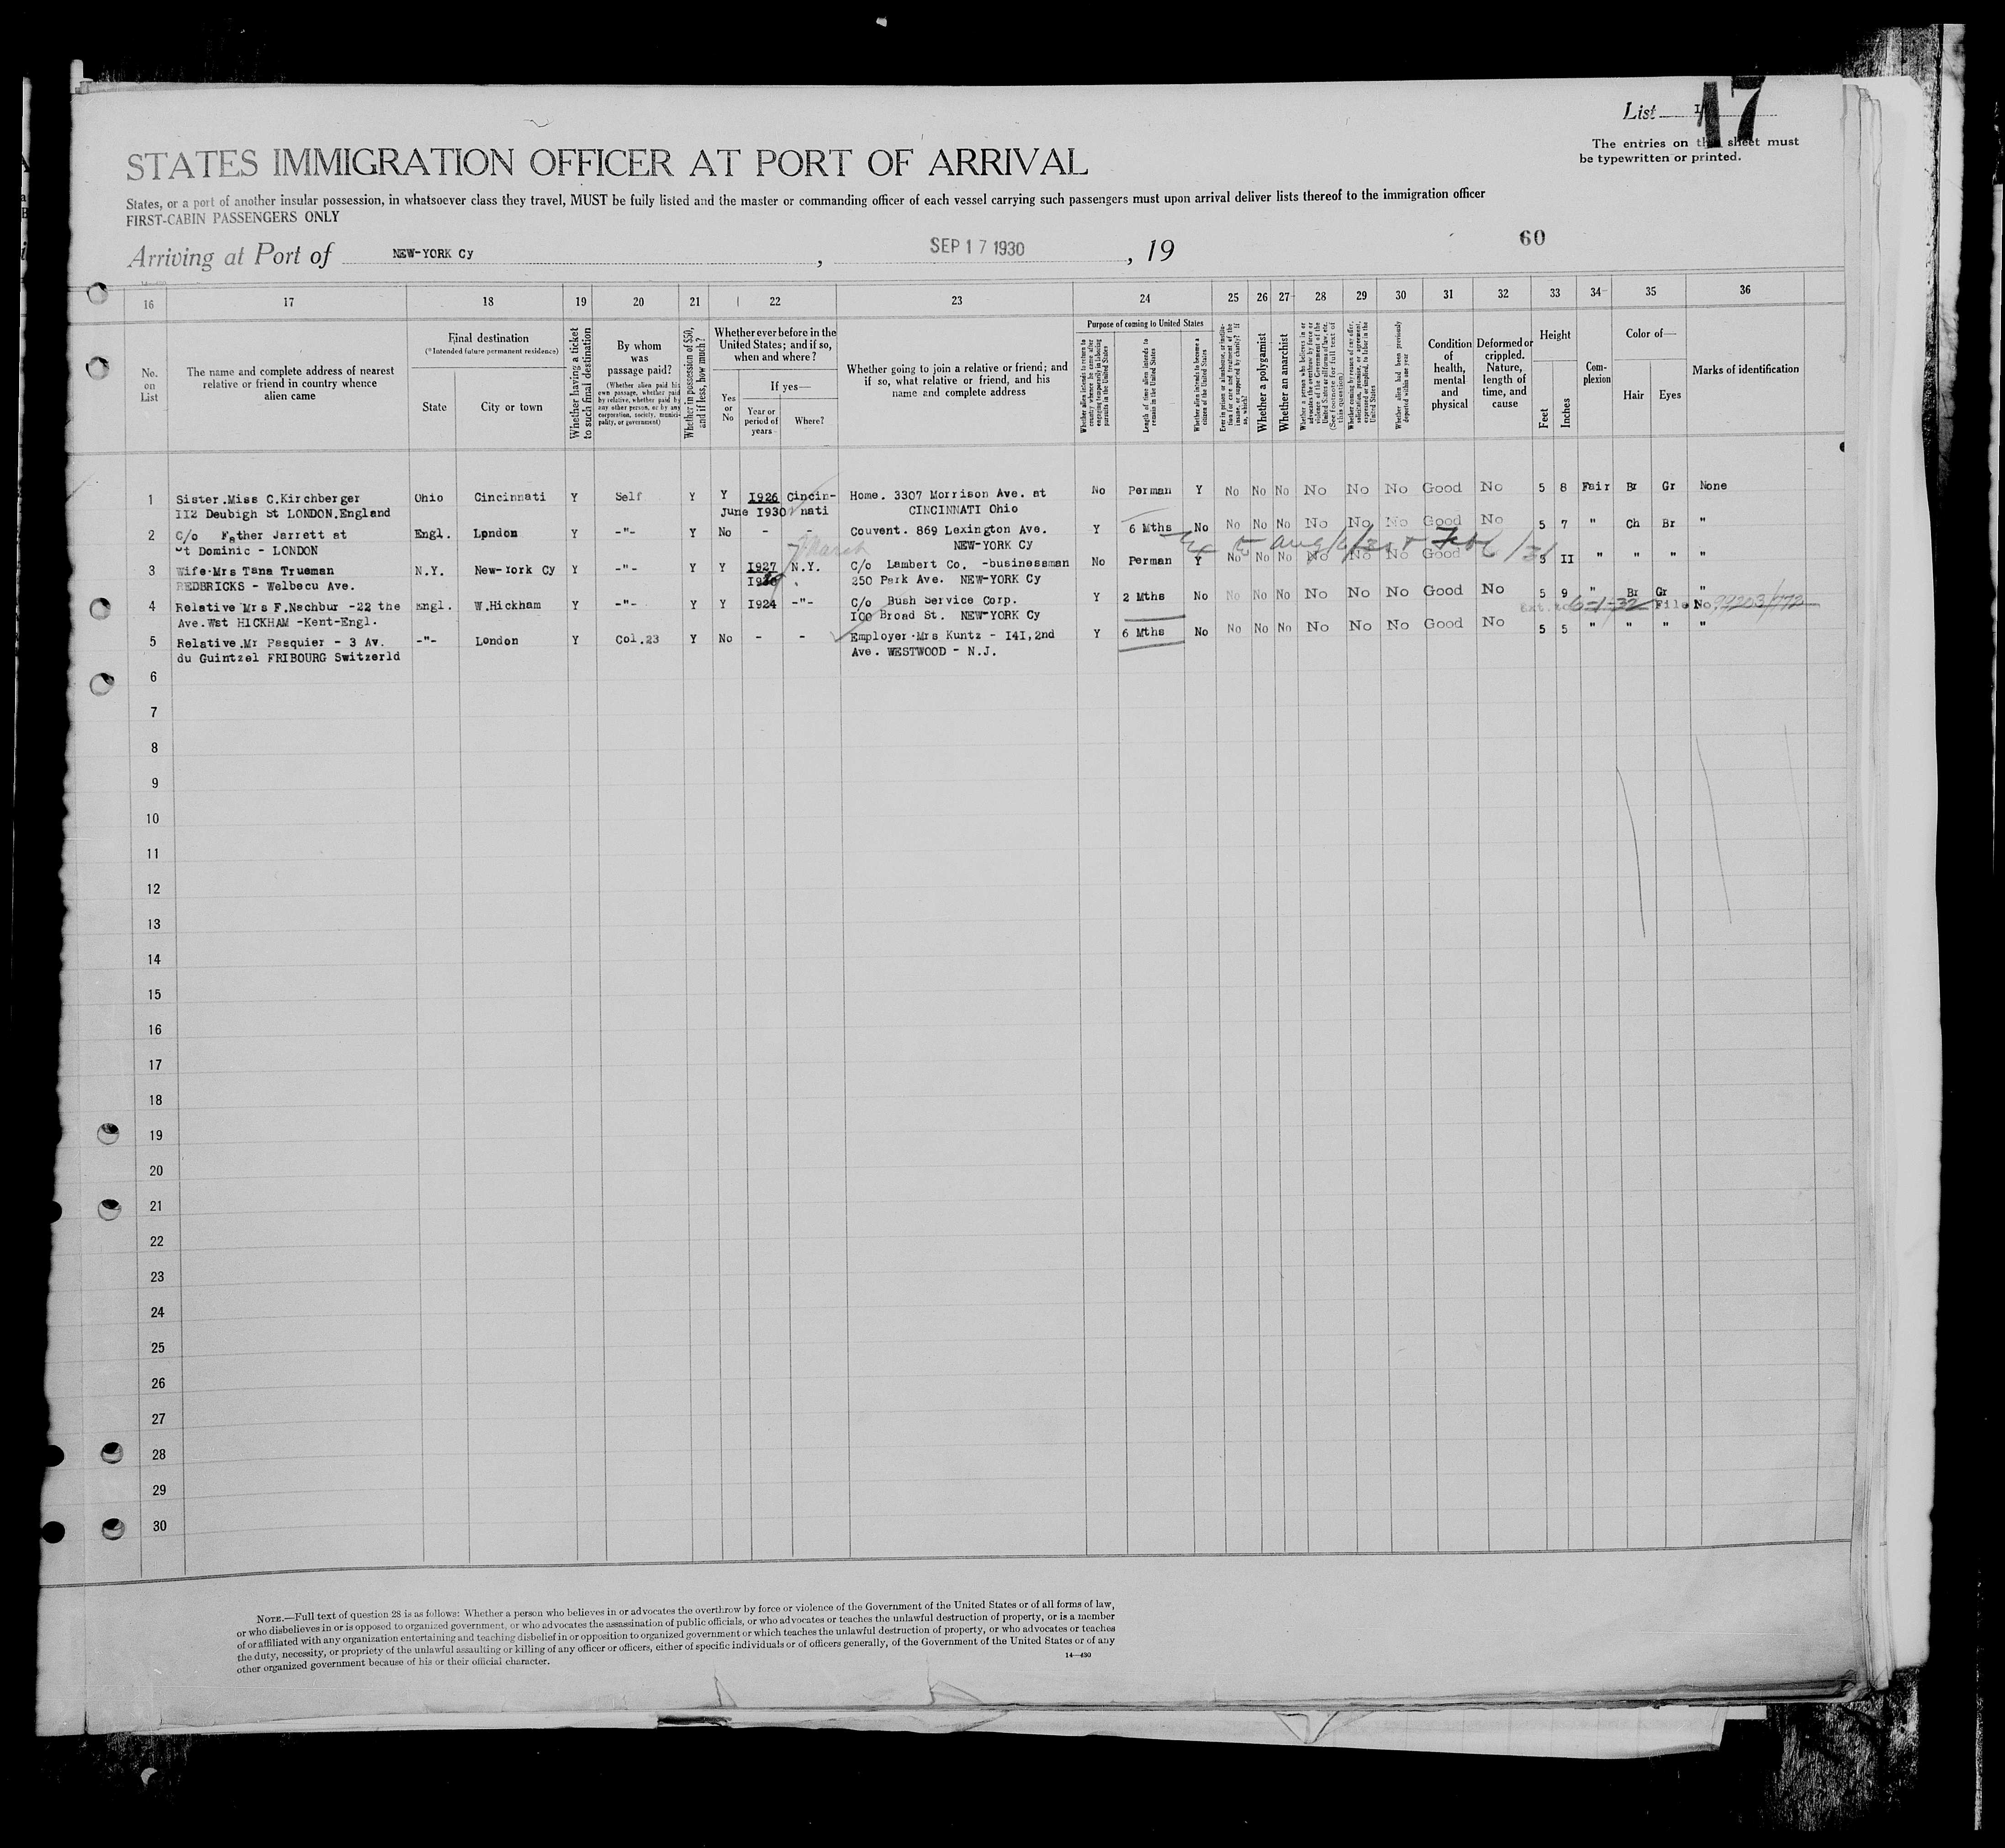 List 17
The entries on this sheet must
be typewritten or printed.
STATES IMMIGRATION OFFICER AT PORT OF ARRIVAL
States, or a port of another insular possession, in whatsoever class they travel, MUST be fully listed and the master or commanding officer of each vessel carrying such passengers must upon arrival deliver lists thereof to the immigration officer
FIRST-CABIN PASSENGERS ONLY
Arriving at Port of NEW-YORK Cy, SEP 17 1930, 19
60
16 17 18 19 20 21 22 23 24 25 26 27 28 29 30 31 32 33 34 35 36
No. on List
The name and complete address of nearest relative or friend in country whence alien came
Final destination
(*Intended future permanent residence)
State
City or town
Whether having a ticket to such final destination
By whom was passage paid?
(Whether alien paid his own passage, whether paid by relative, whether paid by any other person, or by any corporation, society, municipality, or government)
Whether in possession of $50, and if less, how much?
Whether ever before in the United States; and if so, when and where?
Yes or No
If yes—
Year or period of years
Where?
Whether going to join a relative or friend; and if so, what relative or friend, and his name and complete address
Purpose of coming to United States
Whether alien intends to return to country whence he came after engaging temporarily in laboring pursuits in the United States
Length of time alien intends to remain in the United States
Whether alien intends to become a citizen of the United States
Ever in prison or almshouse, or institution for care and treatment of the insane, or supported by charity? If so, which?
Whether a polygamist
Whether an anarchist
Whether a person who believes in or advocates the overthrow by force or violence of the Government of the United States or all forms of law, etc. (See footnote for full text of this question)
Whether coming by reason of any offer, solicitation, promise, or agreement, expressed or implied, to labor in the United States
Whether alien had been previously deported within one year
Condition of health, mental and physical
Deformed or crippled. Nature, length of time, and cause
Height
Feet
Inches
Complexion
Color of—
Hair
Eyes
Marks of identification
1 Sister.Miss C.Kirchberger Ohio Cincinnati Y Self Y Y 1926 Cincin- Home. 3307 Morrison Ave. at No Perman Y No No No No No No Good No 5 8 Fair Br Gr None
112 Deubigh St LONDON.England June 1930 nati CINCINNATI Ohio
2 C/o Father Jarrett at Engl. London Y -"- Y No - - Couvent. 869 Lexington Ave. Y 6 Mths No No No No No No No Good No 5 7 " Ch Br "
St Dominic - LONDON NEW-YORK Cy
March
3 Wife.Mrs Tana Trueman N.Y. New-York Cy Y -"- Y Y 1927 N.Y. C/o Lambert Co. -businessman No Perman Y No No No No No No Good 5 II " " " "
REDBRICKS - Welbecu Ave. 250 Park Ave. NEW-YORK Cy
4 Relative Mrs F.Nachbur -22 the Engl. W.Hickham Y -"- Y Y 1924 -"- C/o Bush Service Corp. Y 2 Mths No No No No No No No Good No 5 9 " Br Gr "
Ave.Wst HICKHAM -Kent-Engl. 100 Broad St. NEW-YORK Cy 6-1-32 File No. 99203/172
5 Relative.Mr Pasquier - 3 Av. -"- London Y Col.23 Y No - - Employer.Mrs Kuntz - 141,2nd Y 6 Mths No No No No No No No Good No 5 5 " " " "
du Guintzel FRIBOURG Switzerld Ave. WESTWOOD - N.J.
6
7
8
9
10
11
12
13
14
15
16
17
18
19
20
21
22
23
24
25
26
27
28
29
30
NOTE.—Full text of question 28 is as follows: Whether a person who believes in or advocates the overthrow by force or violence of the Government of the United States or of all forms of law,
or who disbelieves in or is opposed to organized government, or who advocates the assassination of public officials, or who advocates or teaches the unlawful destruction of property, or is a member
of or affiliated with any organization entertaining and teaching disbelief in or opposition to organized government or which teaches the unlawful destruction of property, or who advocates or teaches
the duty, necessity, or propriety of the unlawful assaulting or killing of any officer or officers, either of specific individuals or of officers generally, of the Government of the United States or of any
other organized government because of his or their official character.
14—430